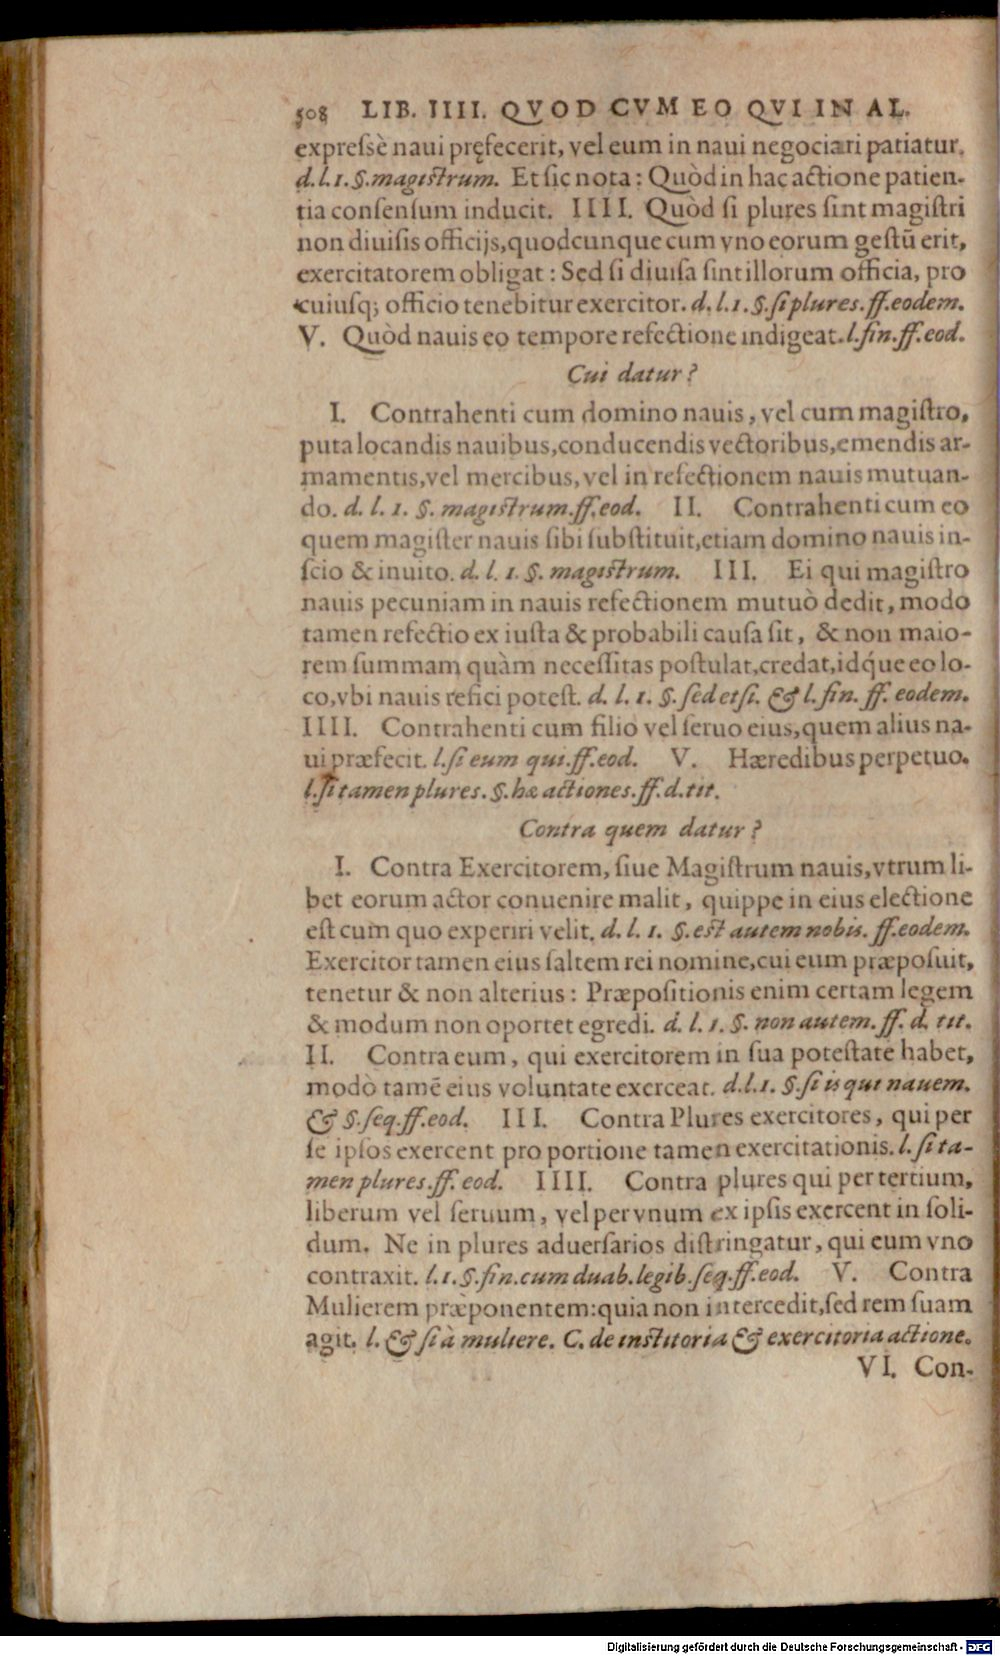 508 LIB. IIII. QVOD CVM EO QVI IN AL.
expreſsè naui pręfecerit, vel eum in naui negociari patiatur.
d.l.1.§.magiſtrum. Et ſic nota: Quòd in hac actione patien-
tia conſenſum inducit. IIII. Quòd ſi plures ſint magiſtri
non diuiſis officijs,quodcunque cum vno eorum geſtũ erit,
exercitatorem obligat: Sed ſi diuiſa ſint illorum officia, pro
cuiuſq; officio tenebitur exercitor. d.l.1.§.ſi plures.ff.eodem.
V. Quòd nauis eo tempore refectione indigeat.l.fin.ff.eod.
Cui datur?
I. Contrahenti cum domino nauis, vel cum magiſtro,
puta locandis nauibus,conducendis vectoribus,emendis ar-
mamentis,vel mercibus,vel in refectionem nauis mutuan-
do. d. l. 1. §. magiſtrum.ff.eod. II. Contrahenti cum eo
quem magiſter nauis ſibi ſubſtituit,etiam domino nauis in-
ſcio & inuito. d. l. 1. §. magiſtrum. III. Ei qui magiſtro
nauis pecuniam in nauis refectionem mutuò dedit, modo
tamen refectio ex iuſta & probabili cauſa ſit, & non maio-
rem ſummam quàm neceſſitas poſtulat,credat,idq́ue eo lo-
co,vbi nauis refici poteſt. d. l. 1. §. ſed etſi. & l.fin. ff. eodem.
IIII. Contrahenti cum filio vel ſeruo eius,quem alius na-
ui præfecit. l.ſi eum qui.ff.eod. V. Hæredibus perpetuo.
l.ſi tamen plures. §.hæ actiones.ff.d.tit.
Contra quem datur?
I. Contra Exercitorem, ſiue Magiſtrum nauis,vtrum li-
bet eorum actor conuenire malit, quippe in eius electione
eſt cum quo experiri velit. d. l. 1. §.eſt autem nobis. ff.eodem.
Exercitor tamen eius ſaltem rei nomine,cui eum præpoſuit,
tenetur & non alterius: Præpoſitionis enim certam legem
& modum non oportet egredi. d. l. 1. §. non autem. ff. d. tit.
II. Contra eum, qui exercitorem in ſua poteſtate habet,
modò tamẽ eius voluntate exerceat. d.l.1. §.ſi is qui nauem.
& §.ſeq.ff.eod. III. Contra Plures exercitores, qui per
ſe ipſos exercent pro portione tamen exercitationis. l.ſi ta-
men plures.ff. eod. IIII. Contra plures qui per tertium,
liberum vel ſeruum, vel per vnum ex ipſis exercent in ſoli-
dum. Ne in plures aduerſarios diſtringatur, qui cum vno
contraxit. l.1.§.fin.cum duab.legib.ſeq.ff.eod. V. Contra
Mulierem præponentem:quia non intercedit,ſed rem ſuam
agit. l. & ſi à muliere. C. de inſtitoria & exercitoria actione.
VI. Con-
Digitalisierung gefördert durch die Deutsche Forschungsgemeinschaft - DFG